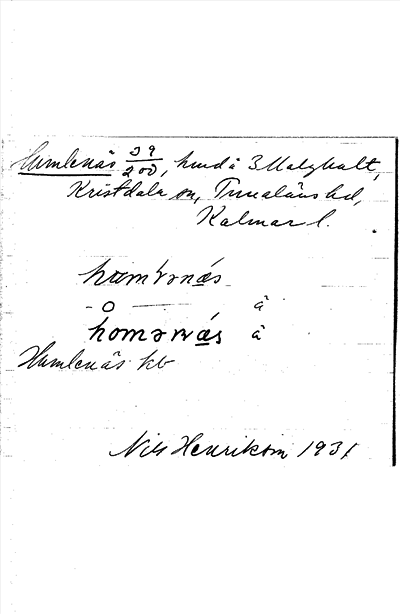 Humlenäs 39/200, hmd i 3 Malghult,
Kristdala sn, Tunaläns hd,
Kalmar l.
humlənás
-o— â
homənás â
Humlenäs kb
Nils Henrikson 1931